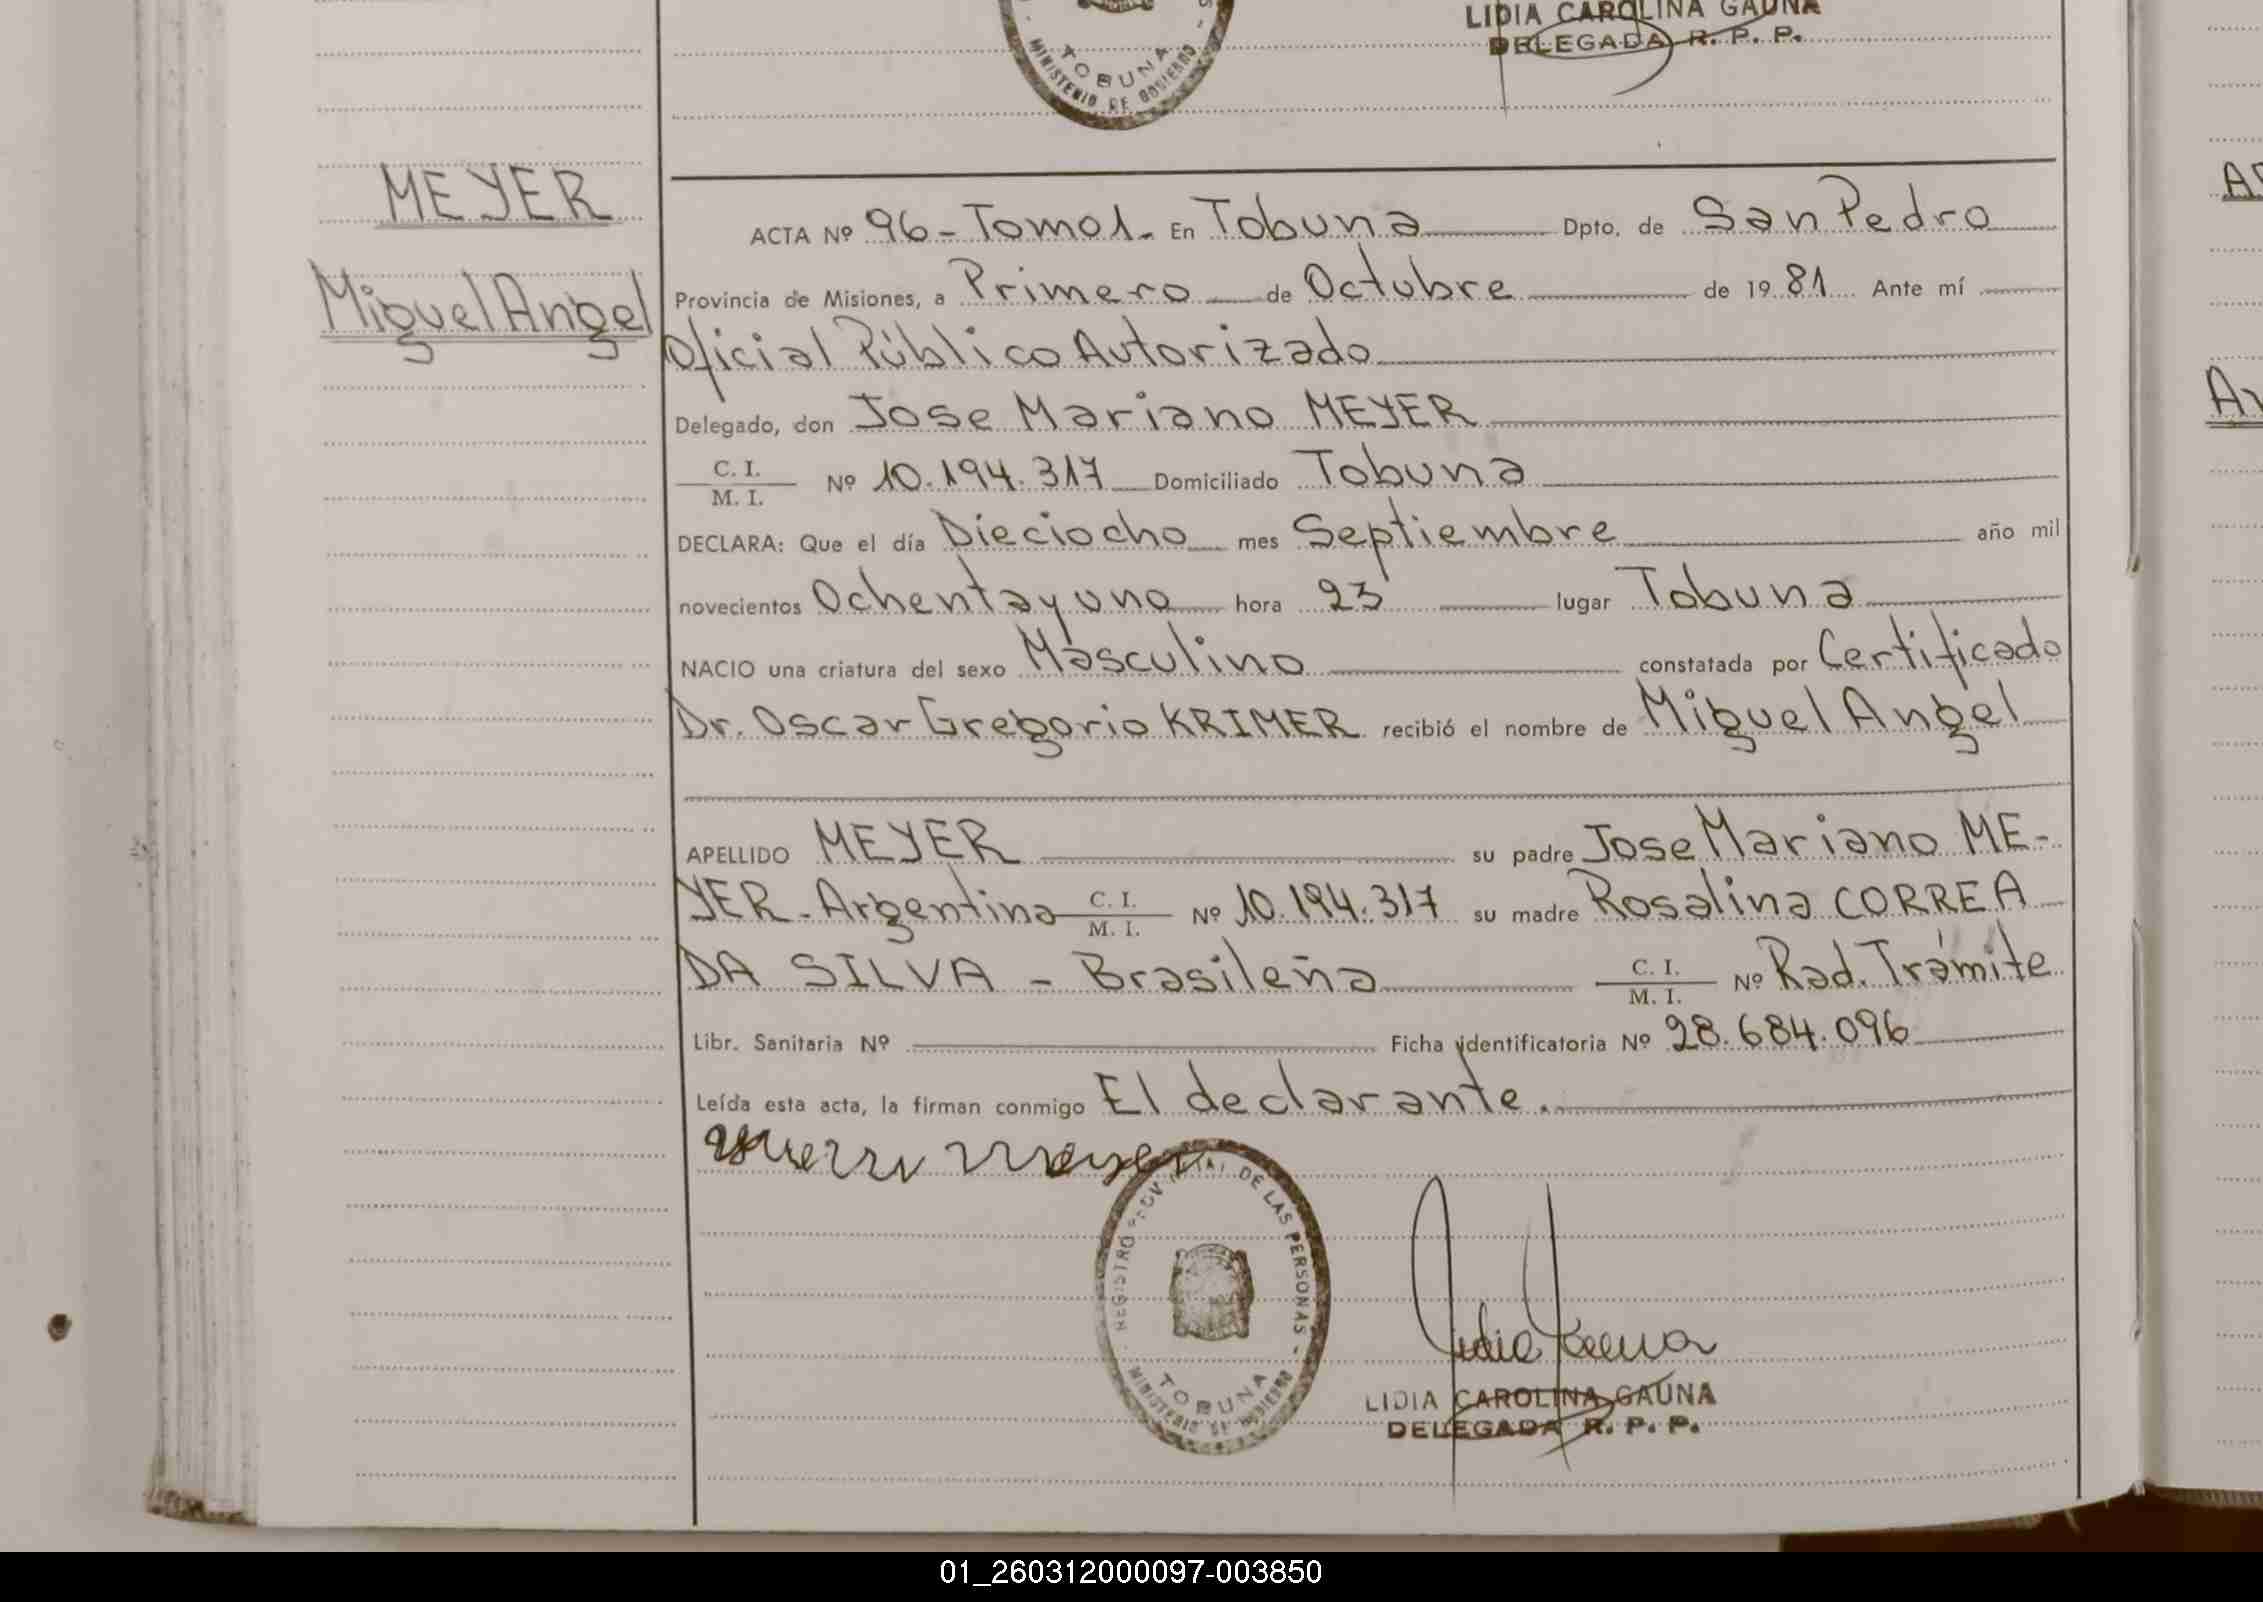 LIDIA CAROLINA GAUNA
DELEGADA R. P. P.
TOBUNA
MINISTERIO DE GOBIERNO
MEYER
Miguel Angel
ACTA Nº 96 - Tomo 1. En Tobuna Dpto. de San Pedro
Provincia de Misiones, a Primero de Octubre de 19 81 Ante mí
Oficial Público Autorizado
Delegado, don Jose Mariano MEYER
C. I. / M. I. Nº 10.194.317 Domiciliado Tobuna
DECLARA: Que el día Dieciocho mes Septiembre año mil
novecientos Ochenta y uno hora 23 lugar Tobuna
NACIO una criatura del sexo Masculino constatada por Certificado
Dr. Oscar Gregorio KRIMER recibió el nombre de Miguel Angel
APELLIDO MEYER su padre Jose Mariano ME-
YER - Argentino C. I. / M. I. Nº 10.194.317 su madre Rosalina CORREA
DA SILVA - Brasileña C. I. / M. I. Nº Rad. Trámite
Libr. Sanitaria Nº Ficha identificatoria Nº 28.684.096
Leída esta acta, la firman conmigo El declarante.
Meyer
REGISTRO PROVINCIAL DE LAS PERSONAS
TOBUNA
MINISTERIO DE GOBIERNO
Lidia Gauna
LIDIA CAROLINA GAUNA
DELEGADA R. P. P.
01_260312000097-003850